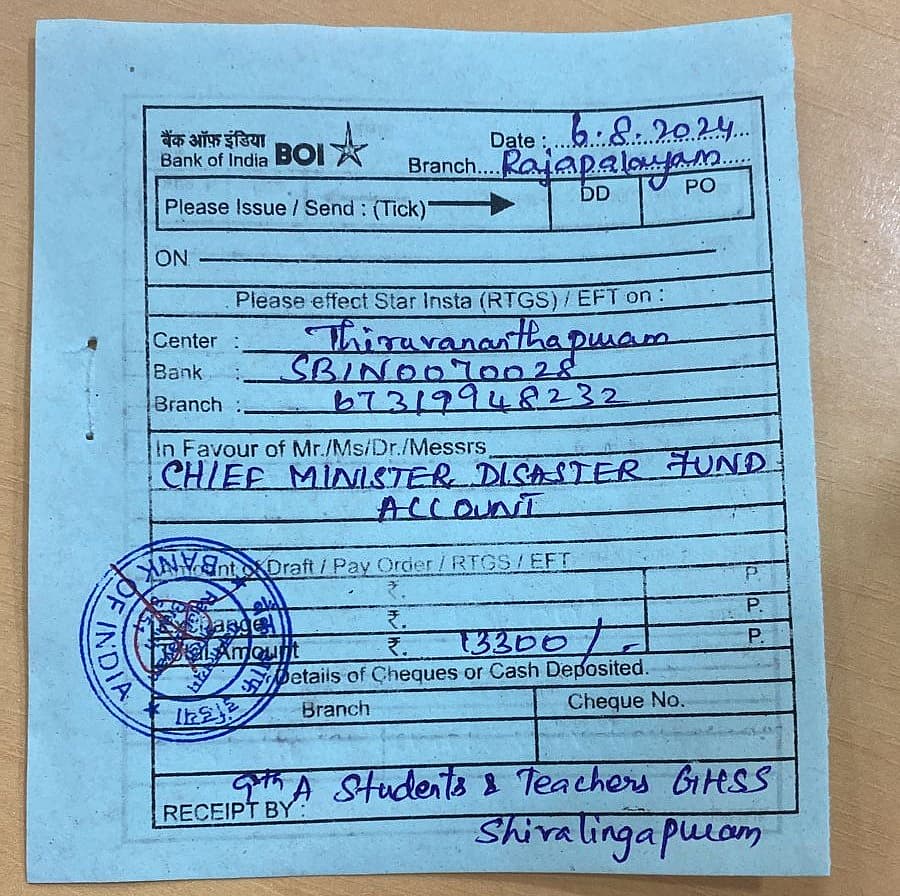 बैंक ऑफ इंडिया
Bank of India BOI
Date : 6.8.2024
Branch Rajapalayam
Please Issue / Send : (Tick) DD PO
ON
Please effect Star Insta (RTGS) / EFT on :
Center : Thiruvananthapuram
Bank : SBIN0070028
Branch : 67319948232
In Favour of Mr./Ms/Dr./Messrs
CHIEF MINISTER DISASTER FUND
ACCOUNT
Amount of Draft / Pay Order / RTGS / EFT
₹. P.
Exchange ₹. P.
Total Amount ₹. 13300/- P.
Details of Cheques or Cash Deposited.
Branch Cheque No.
9th A Students & Teachers GHSS
RECEIPT BY :
Shivalingapuram
BANK OF INDIA
बैंक ऑफ इंडिया